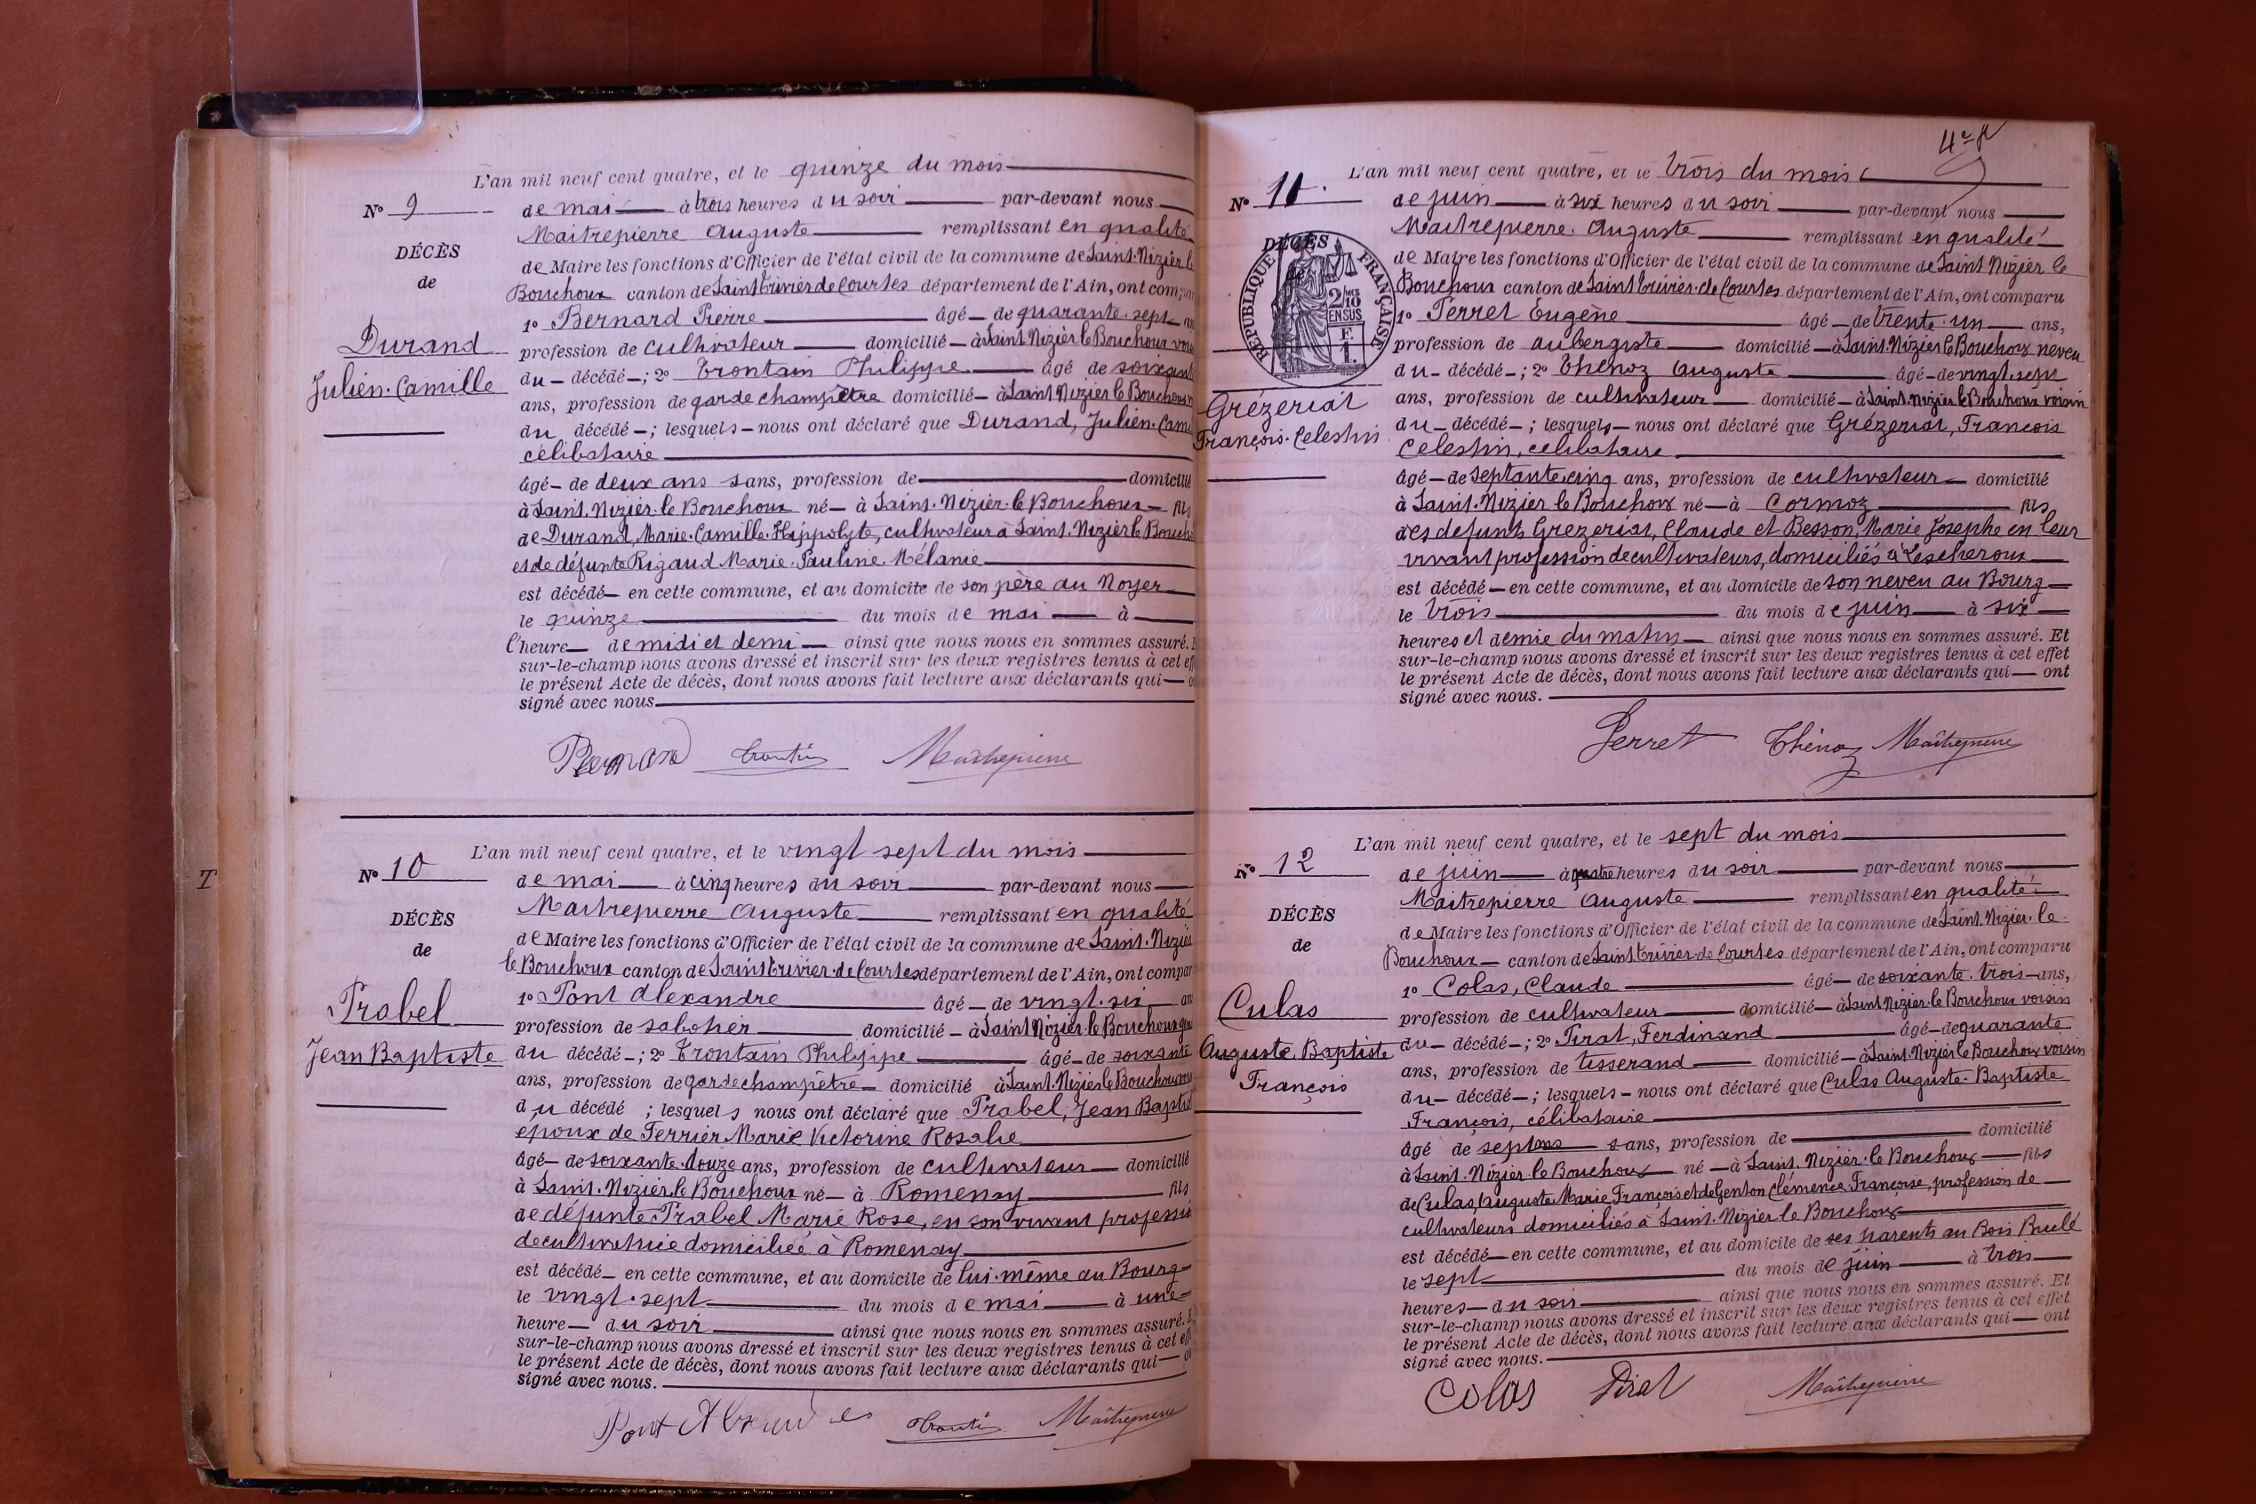 L'an mil neuf cent quatre, et le quinze du mois
N° 9
de mai à trois heures du soir par-devant nous
Maitrepierre Auguste remplissant en qualité
DÉCÈS
de Maire les fonctions d'Officier de l'état civil de la commune de Saint-Nizier le
de
Bouchoux canton de Saint Trivier de Courtes département de l'Ain, ont
1° Bernard Pierre âgé de quarante-sept
Durand
profession de cultivateur domicilié à Saint Nizier le Bouchoux
Julien-Camille
du décédé ; 2° Trontain Philippe âgé de
ans, profession de garde champêtre domicilié à Saint Nizier le Bouchoux
du décédé ; lesquels nous ont déclaré que Durand, Julien
célibataire
âgé de deux ans sans, profession de domicilié
à Saint-Nizier-le Bouchoux né à Saint-Nizier-le Bouchoux fils
de Durand, Marie-Camille-Hippolyte, cultivateur à Saint-Nizier le
et de défunte Rigaud Marie-Pauline Mélanie
est décédé en cette commune, et au domicile de son père au Noyer
le quinze du mois de mai à
l'heure de midi et demi ainsi que nous nous en sommes assuré.
sur-le-champ nous avons dressé et inscrit sur les deux registres tenus à cet
le présent Acte de décès, dont nous avons fait lecture aux déclarants qui
signé avec nous
Bernard Trontin Maitrepierre
L'an mil neuf cent quatre, et le vingt sept du mois
N° 10
de mai à cinq heures du soir par-devant nous
Maitrepierre Auguste remplissant en qualité
DÉCÈS
de Maire les fonctions d'Officier de l'état civil de la commune de Saint-Nizier
de
le Bouchoux canton de Saint Trivier-de Courtes département de l'Ain, ont
1° Pont Alexandre âgé de vingt-six
Prabel
profession de sabotier domicilié à Saint Nizier-le Bouchoux
Jean Baptiste
du décédé ; 2° Trontain Philippe âgé de soixante
ans, profession de garde champêtre domicilié à Saint-Nizier le Bouchoux
du décédé ; lesquels nous ont déclaré que Prabel, Jean
époux de Ferrier Marie Victorine Rosalie
âgé de soixante-douze ans, profession de cultivateur domicilié
à Saint-Nizier-le Bouchoux né à Romenay fils
de défunte Prabel Marie Rose, en son vivant
de cultivatrice domiciliée à Romenay
est décédé en cette commune, et au domicile de lui-même au Bourg
le vingt-sept du mois de mai à une
heure du soir ainsi que nous nous en sommes assuré.
sur-le-champ nous avons dressé et inscrit sur les deux registres tenus à cet
le présent Acte de décès, dont nous avons fait lecture aux déclarants qui
signé avec nous.
Pont Trontin Maitrepierre
T
L'an mil neuf cent quatre, et le trois du mois
N° 11.
de juin à six heures du soir par-devant nous
Maitrepierre Auguste remplissant en qualité
DÉCÈS
RÉPUBLIQUE FRANÇAISE
2/10 EN SUS
F. 1.
de Maire les fonctions d'Officier de l'état civil de la commune de Saint Nizier le
Bouchoux canton de Saint Trivier-de-Courtes département de l'Ain, ont comparu
1° Perret Eugène âgé de trente-un ans,
profession de aubergiste domicilié à Saint-Nizier le Bouchoux neveu
du décédé ; 2° Thénoz Auguste âgé de vingt-sept
Grézeriat
ans, profession de cultivateur domicilié à Saint-Nizier le Bouchoux voisin
François-Celestin
du décédé ; lesquels nous ont déclaré que Grézeriat, François
Celestin, célibataire
âgé de septante cinq ans, profession de cultivateur domicilié
à Saint-Nizier le Bouchoux né à Cormoz fils
des défunts Grezeriat, Claude et Besson, Marie Josephe en leur
vivant profession de cultivateurs, domiciliés à Lescheroux
est décédé en cette commune, et au domicile de son neveu au Bourg
le trois du mois de juin à six
heures et demie du matin ainsi que nous nous en sommes assuré. Et
sur-le-champ nous avons dressé et inscrit sur les deux registres tenus à cet effet
le présent Acte de décès, dont nous avons fait lecture aux déclarants qui ont
signé avec nous.
Perret Thénoz Maitrepierre
L'an mil neuf cent quatre, et le sept du mois
N° 12
de juin à quatre heures du soir par-devant nous
Maitrepierre Auguste remplissant en qualité
DÉCÈS
de Maire les fonctions d'Officier de l'état civil de la commune de Saint-Nizier-le
de
Bouchoux canton de Saint Trivier-de Courtes département de l'Ain, ont comparu
1° Colas, Claude âgé de soixante-trois ans,
Culas
profession de cultivateur domicilié à Saint Nizier-le Bouchoux voisin
Auguste Baptiste
du décédé ; 2° Pirat, Ferdinand âgé de quarante
François
ans, profession de tisserand domicilié à Saint-Nizier le Bouchoux voisin
du décédé ; lesquels nous ont déclaré que Culas Auguste-Baptiste
François, célibataire
âgé de sept ans, profession de domicilié
à Saint-Nizier-le Bouchoux né à Saint-Nizier-le Bouchoux fils
de Culas, Auguste Marie François et de Genton Clémence Françoise, profession de
cultivateurs domiciliés à Saint-Nizier le Bouchoux
est décédé en cette commune, et au domicile de ses parents au Bois Brulé
le sept du mois de juin à trois
heures du soir ainsi que nous nous en sommes assuré. Et
sur-le-champ nous avons dressé et inscrit sur les deux registres tenus à cet effet
le présent Acte de décès, dont nous avons fait lecture aux déclarants qui ont
signé avec nous.
Colas Pirat Maitrepierre